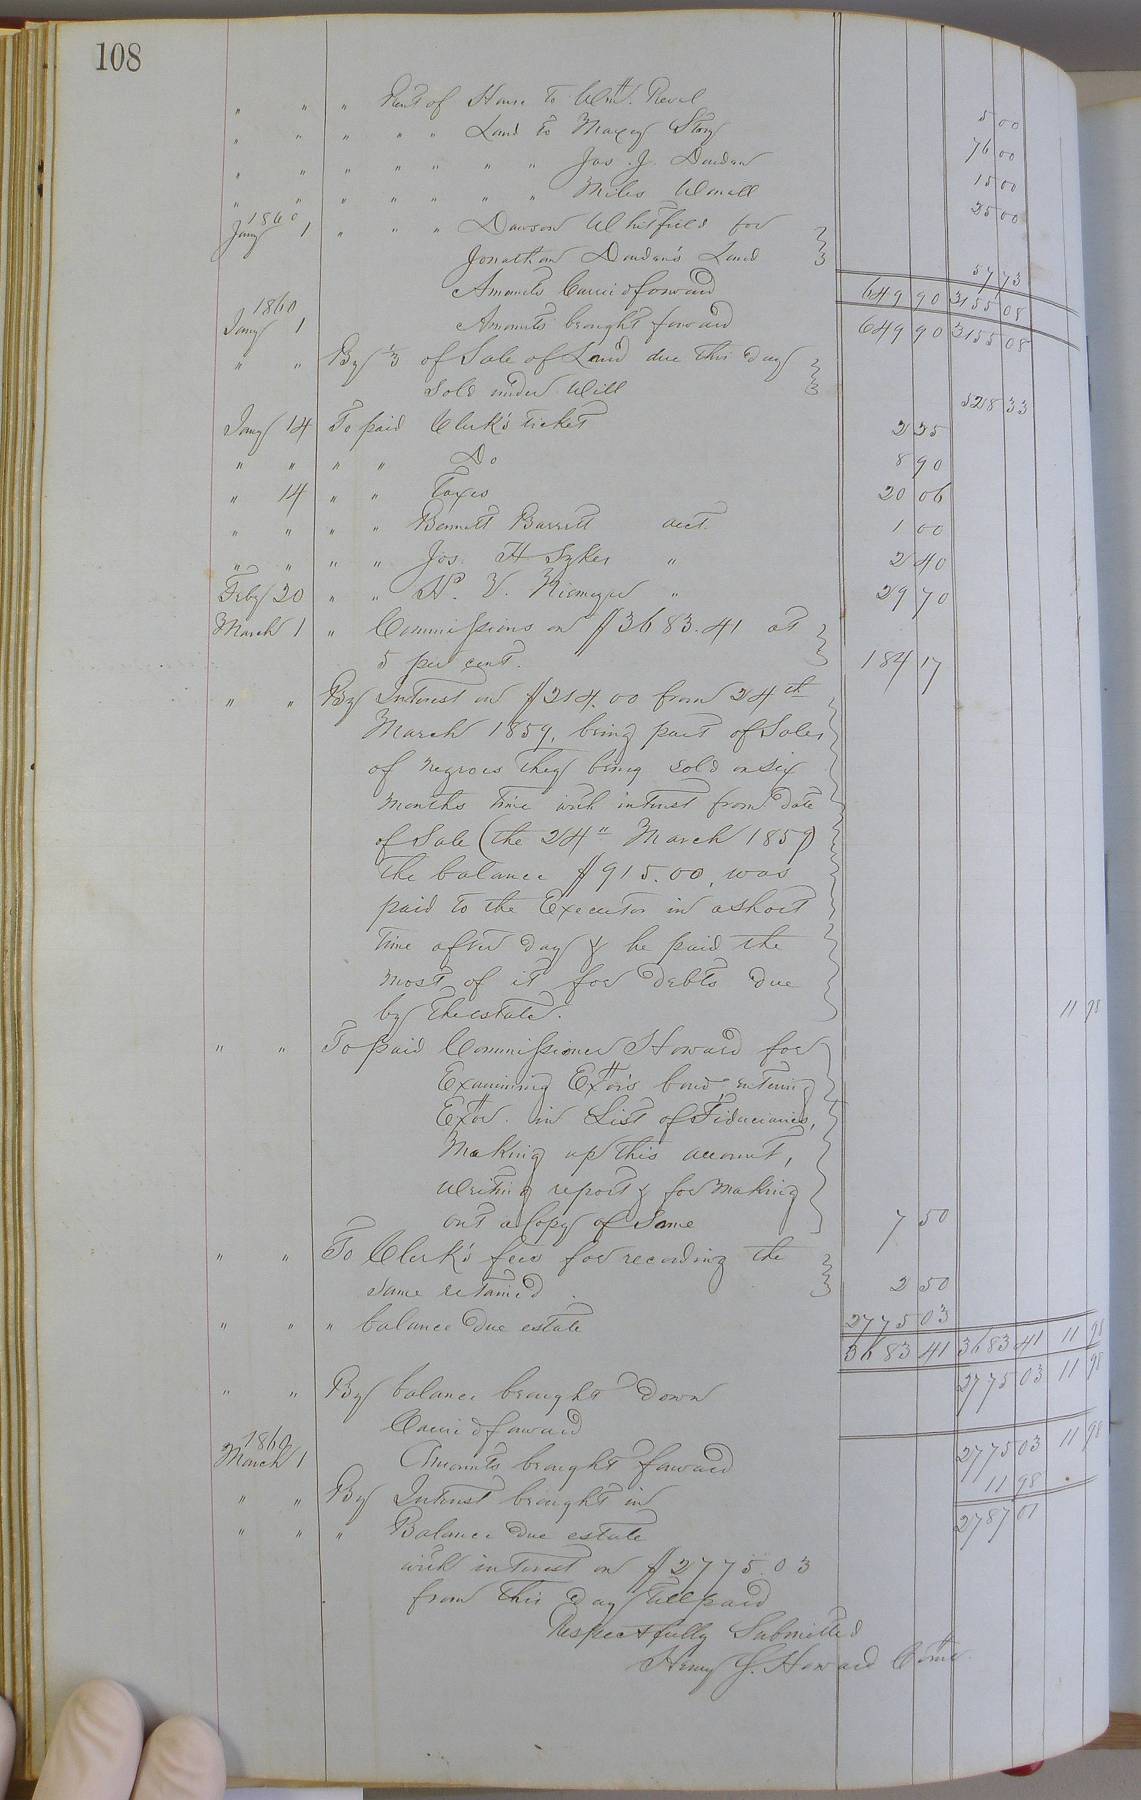 108
" " " Rent of House to Wm. Revel 5 00
" " " " " Land to Maxey Story 76 00
" " " " " " " Jas. J. Darden 15 00
" " " " " " " Miles Womall 25 00
1860
Jany 1 " " " Dawson Whitfield for
Jonathan Darden's Land 57 73
Amounts Carried forward 649 90 3155 08
1860
Jany 1 Amounts brought forward 649 90 3155 08
" " By 1/3 of Sale of Land due this day
Sold under Will 528 33
Jany 14 To paid Clerk's ticket 2 25
" " " " Do 8 90
" 14 " " Taxes 20 06
" " " " Bennett Barrett acct. 1 00
" " " " Jos. H Sykes " 2 40
Feby 20 " " H. V. Niemeyer " 29 70
March 1 " Commissions on $3683.41 at
5 per cent. 184 17
" " By Interest on $214.00 from 24th
March 1859, being part of Sales
of negroes they being sold on six
months time with interest from date
of Sale (the 24" March 1859)
the balance $915.00, was
paid to the Executor in a short
time after day & he paid the
most of it for debts due
by the estate. 11 98
" " To paid Commissioner Howard for
Examining Extor's bond, entering
Extor. in List of Fiduciaries,
Making up this account,
writing report & for making
out a Copy of Same 7 50
" " To Clerk's fees for recording the
same retained. 2 50
" " " balance due estate 2775 03
3683 41 3683 41 11 98
" " By balance brought down 2775 03 11 98
Carried forward
1860
March 1 Amounts brought forward 2775 03 11 98
" " By Interest brought in 11 98
" " " Balance due estate 2787 01
with interest on $2775.03
from this day till paid
Respectfully Submitted
Henry J. Howard Comr.